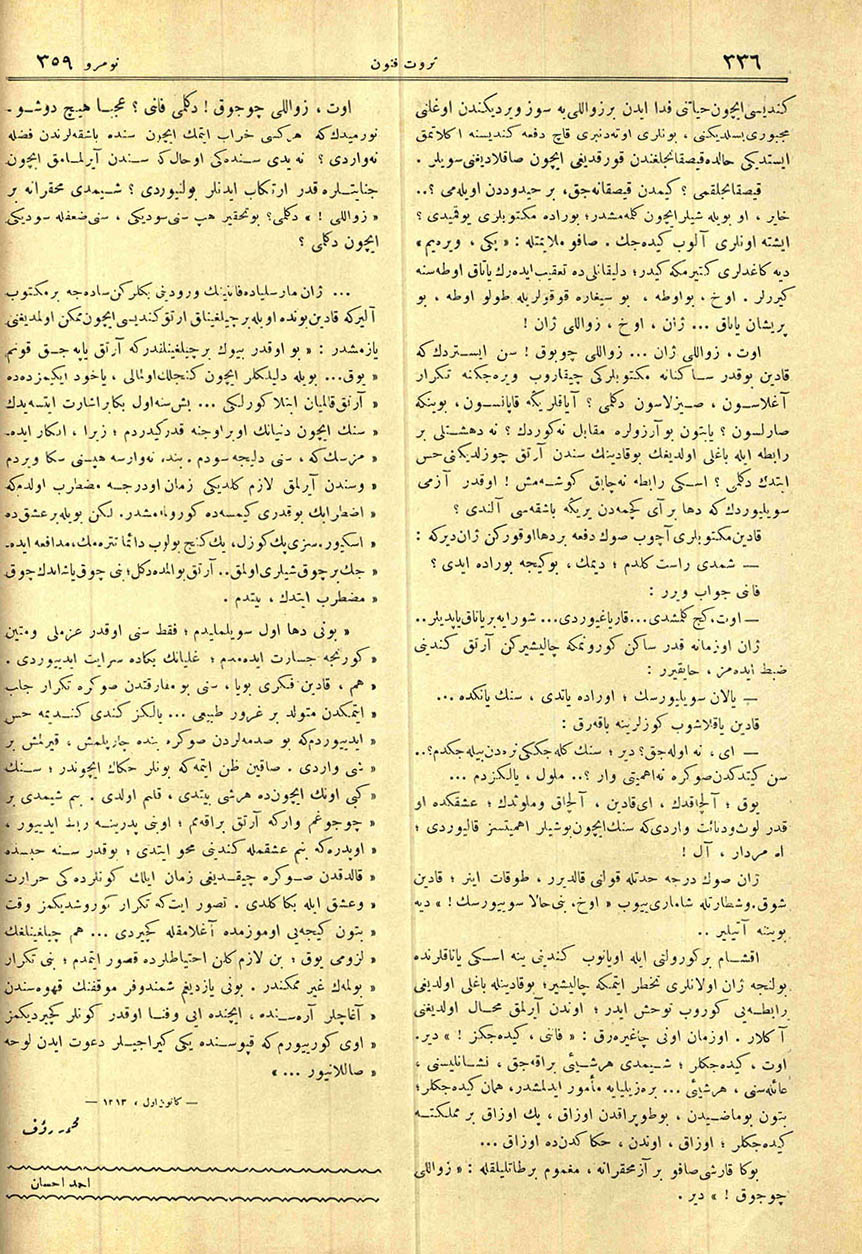 ٣٣٦
ثروت فنون
نومرو ٣٥٩
كنديسى ايچون حياتنى فدا ايدن بر زواللى يه سوز ويرديكندن اوغلانى
مجبورى بسلديكنى ، بونلرى اوته دنبرى قاچ دفعه كنديسنه اكلاتمق
ايستديكى حالده قيصقانجلغندن قورقديغى ايچون صاقلاديغنى سويلر .
قيصقانجلقمى ؟ كيمدن قيصقانه جق، بر حيدوددن اويله مى ؟..
خاير ، او بويله شيلر ايچون كلمه مشدر؛ بوراده مكتوبلرى يوقميدى ؟
ايشته اونلرى آلوب كيده جك . صافو ملايمتله : « پكى ، ويره يم »
ديه كاغدلرى كتيرمكه كيدر؛ دليقانلى ده تعقيب ايده رك ياتاق اوطه سنه
كيررلر . اوخ ، بو اوطه ، بو سيغاره قوقولريله طولو اوطه ، بو
پريشان ياتاق ... ژان ، اوخ ، زواللى ژان !
اوت ، زواللى ژان ... زواللى چوجوق ! سن ايستردك كه
قادين بوقدر ساكتانه مكتوبلركى چيقاروب ويره جكنه تكرار
آغلاسون ، صيزلاسون دكلمى ؟ آياقلريكه قاپانسون ، بوينكه
صارلسون ؟ يا بتون بو آرزولره مقابل نه كوردك ؟ نه دهشتلى بر
رابطه ايله باغلى اولديغك بو قادينك سندن آرتق چوزلديكنى حس
ايتدك دكلمى ؟ اسكى رابطه نه چابق كوشه مش ! اوقدر آزمى
سويليوردك كه دها بر آى كچمه دن يريكه باشقه سى آلندى ؟
قادين مكتوبلرى آچوب صوك دفعه بر دها اوقوركن ژان ديركه :
— شمدى راست كلدم ؛ ديمك ، بو كيجه بوراده ايدى ؟
فانى جواب ويرر :
— اوت، كج كلمشدى... قار ياغيوردى... شورايه بر ياتاق ياپديلر..
ژان اوزمانه قدر ساكن كورونمكه چاليشيركن آرتق كندينى
ضبط ايده مز ، حايقيرر :
— يالان سويليورسك ؛ اوراده ياتدى ، سنك يانكده ...
قادين ياقلاشوب كوزلرينه باقه رق :
— اى ، نه اوله جق؟ دير ؛ سنك كله جككى نره دن بيله جكدم؟..
سن كيتدكدن صوكره نه اهميتى وار ؟.. ملول ، يالكزدم ...
يوق ؛ آلچاقدك ، اى قادين ، آلچاق وملوثدك ؛ عشقكده او
قدر لوث ودنائت واردى كه سنك ايچون بو شيلر اهميتسز قاليوردى ؛
اه مردار ، آل !
ژان صوك درجه حدتله قولنى قالديرر ، طوقات اينر ؛ قادين
شوق وشطارتله شامارى ييوب « اوخ، بنى حالا سويورسك ! » ديه
بوينه آتيلير ..
اقشام بر كورولتى ايله اويانوب كندينى ينه اسكى ياتاقلرنده
بولنجه ژان اولانلرى تخطر ايتمكه چاليشير؛ بو قادينله باغلى اولديغى
رابطه يى كوروب توحش ايدر ؛ اوندن آيرلمق محال اولديغنى
آكلار . اوزمان اونى چاغيره رق : « فانى ، كيده جكز ! » دير.
اوت ، كيده جكلر ؛ شيمدى هرشيئى براقه جق ، نشانليسنى ،
عائله سنى ، هرشيئى ... بره زيليايه مأمور ايدلمشدر، همان كيده جكلر؛
بتون بو ماضيدن ، بو طوپراقدن اوزاق ، پك اوزاق بر مملكته
كيده جكلر ؛ اوزاق ، اوندن ، حكا كدن ده اوزاق ...
بوكا قارشى صافو بر آز محقرانه ، مغموم بر طاتليلقله : « زواللى
چوجوق ! » دير .
اوت ، زواللى چوجوق ! دكلمى فانى ؟ عجبا هيچ دوشو -
نورميدك كه هركسى خراب ايتمك ايچون سنده باشقه لرندن فضله
نه واردى ؟ نه يدى سنده كى او حال كه سندن آيرلمامق ايچون
جنايتلره قدر ارتكاب ايدنلر بولنيوردى ؟ شيمدى محقرانه بر
« زواللى ! » دكلمى؟ بو تحقير هپ سنى سوديكى ، سنى ضعفله سوديكى
ايچون دكلمى ؟
... ژان مارسيلياده فانينك ورودينى بكلركن ساده جه بر مكتوب
آليركه قادين بونده اويله بر چيلغينلق آرتق كنديسى ايچون ممكن اولمديغنى
يازمشدر : « بو اوقدر بيوك بر چيلغينلقدركه آرتق ياپه جق قوتم
« يوق... بويله دليلكلر ايچون كنجلك اولمالى ، ياخود ايكيمزده ده
« آرتق قالميان ابتلا كورلكى ... بش سنه اول بكا بر اشارت ايتسه يدك
« سنك ايچون دنيانك اوبر اوجنه قدر كيدردم ؛ زيرا ، انكار ايده -
« مزسك كه ، سنى دليجه سودم . بنده نه وارسه هپسنى سكا ويردم
« وسندن آيرلمق لازم كلديكى زمان اودرجه مضطرب اولدم كه
« اضطرابك بو قدرى كيمسه ده كورولمامشدر. لكن بويله بر عشق ده
« اسكيور. سزى پك كوزل، پك كنج بولوب دائما تتره مك، مدافعه ايده -
« جك بر چوق شيلرى اولمق.. آرتق بو المده دكل؛ بنى چوق ياشاتدك چوق
« مضطرب ايتدك ، بيتدم .
« بونى دها اول سويلمليدم ؛ فقط سنى اوقدر عزملى ومتين
« كورنجه جسارت ايده مدم ؛ غليانك بكاده سرايت ايدييوردى .
« هم ، قادين فكرى بويا ، سنى بو مفارقتدن صوكره تكرار جلب
« ايتمكدن متولد بر غرور طبيعى ... يالكز كندى كنديمه حس
« ايدييوردم كه بو صدمه لردن صوكره بنده چارپلمش ، قيرلمش بر
« شى واردى . صاقين ظن ايتمه كه بونلر حكاك ايچوندر ؛ سنك
« كبى اونك ايچون ده هرشى بيتدى ، قلبم اولدى . بم شيمدى بر
« چوجوغم واركه آرتق براقه مم ؛ اونى پدرينه ربط ايدييور ،
« اوپدركه بنم عشقمله كندينى محو ايتدى ؛ بوقدر سنه حبسده
« قالدقدن صوكره چيقديغى زمان ايلك كونلرده كى حرارت
« وعشق ايله بكا كلدى . تصور ايت كه تكرار كوروشديكمز وقت
« بتون كيجه يى اوموزمده آغلامقله كچيردى ... هم چيلغينلغك
« لزومى يوق ؛ بن لازم كلن احتياطلرده قصور ايتمدم ؛ بنى تكرار
« بولمه ك غير ممكندر . بونى يازديغم شمندوفر موقفنك قهوه سندن
« آغاچلر آره سنده ، ايچنده ايى وفنا اوقدر كونلر كچيرديكمز
« اوى كورييورم كه قپوسنده يكى كيراجيلر دعوت ايدن لوحه
« صاللانيور ... »
— كانون اول ، ١٣١٣ —
محمد رؤف
احمد احسان